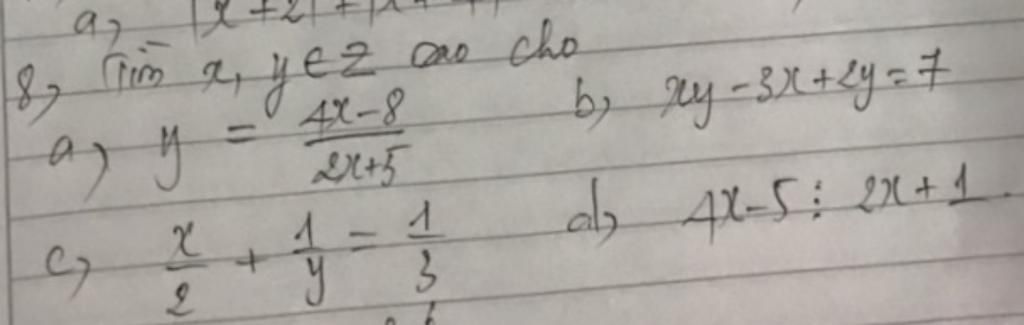 a, |x+2|+|x
8, Tìm x, y ∈ Z sao cho
a, y = (4x-8)/(2x+5) b, xy - 3x + 2y = 7
c, x/2 + 1/y = 1/3 d, 4x-5 ⋮ 2x+1.